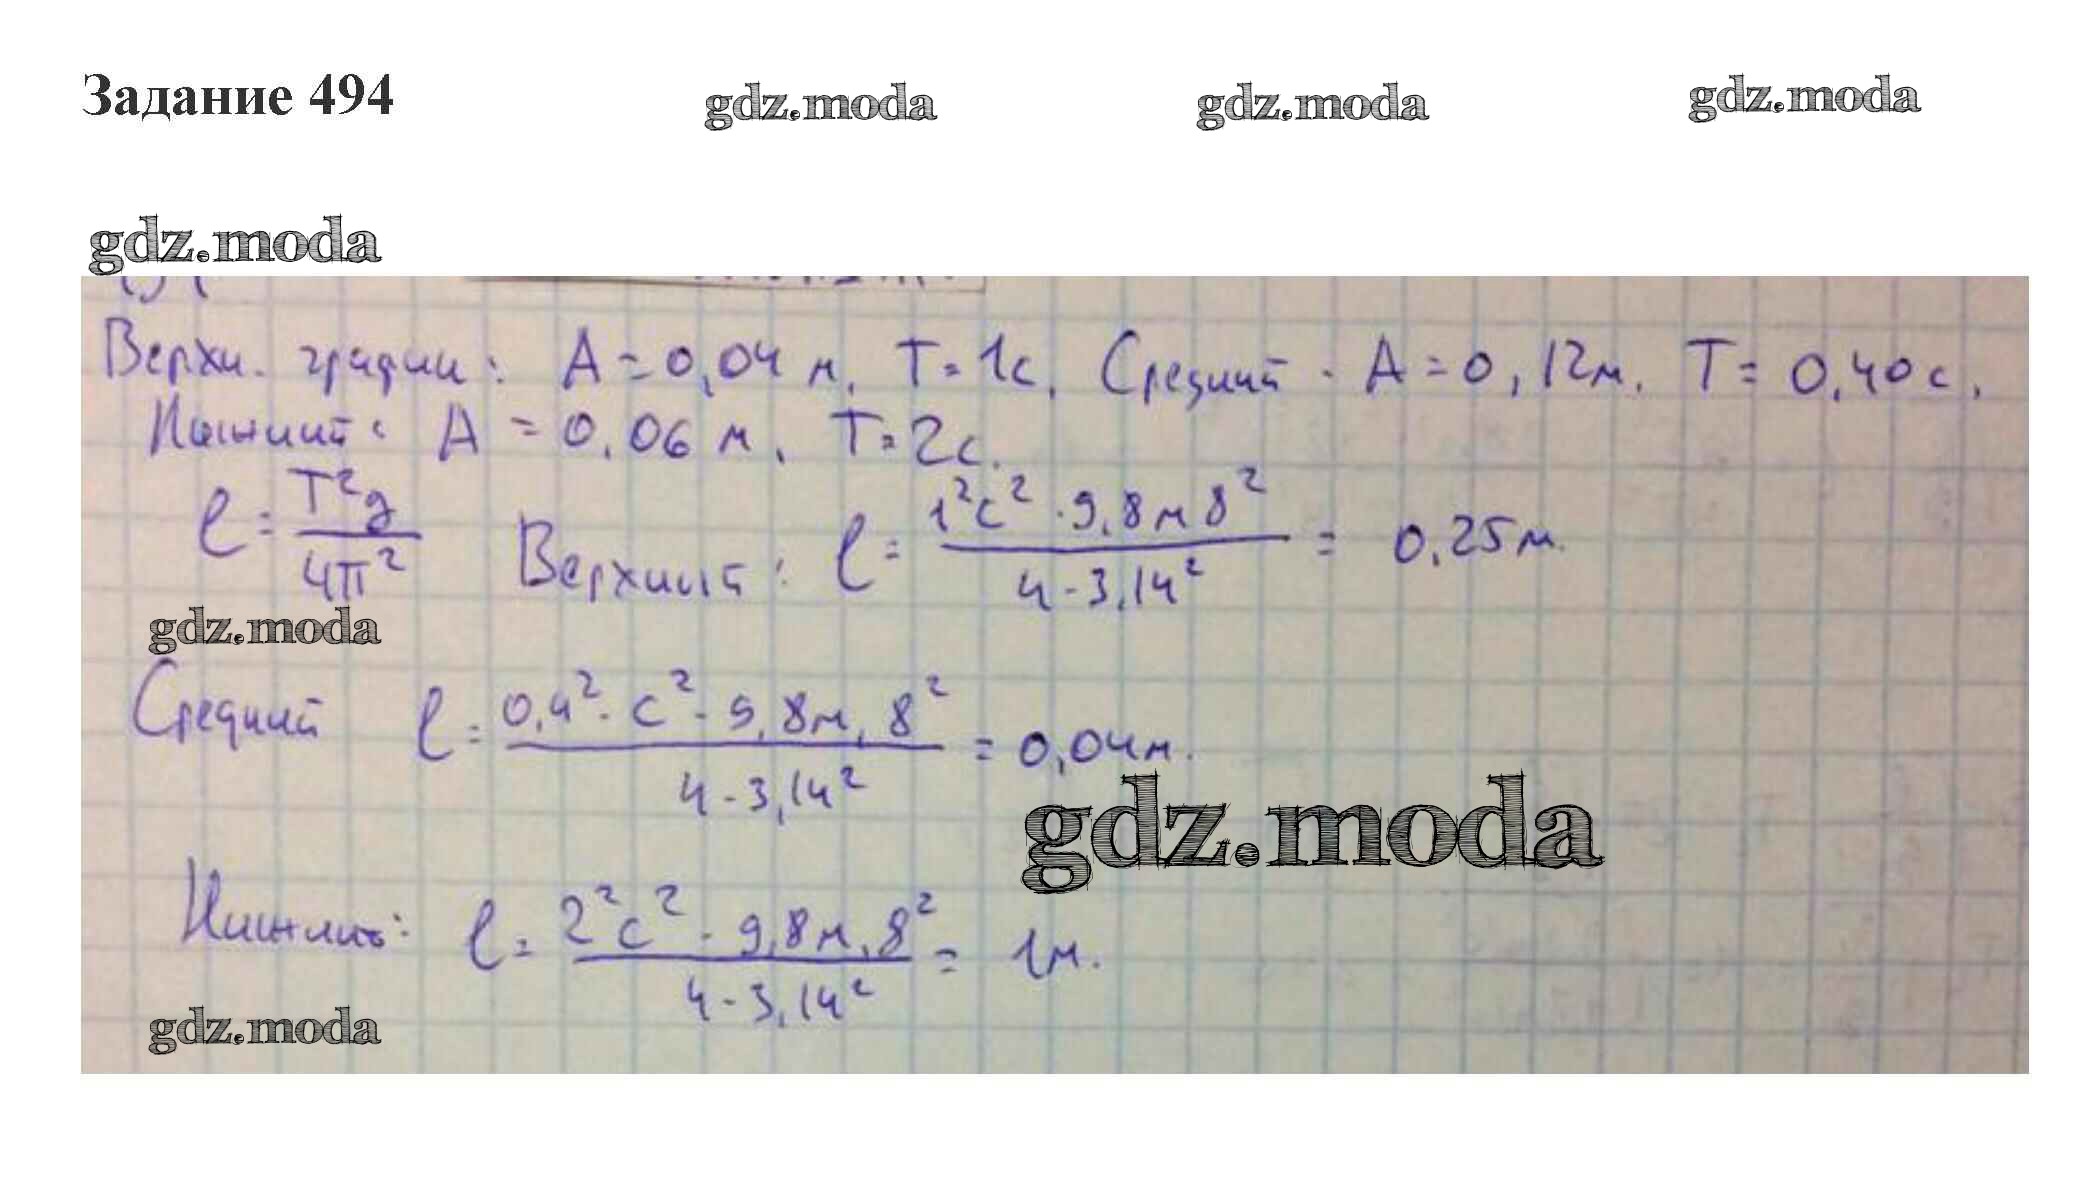 Задание 494
gdz.moda gdz.moda gdz.moda
gdz.moda
Верхн. график: A = 0,04 м. T = 1с. Средний - A = 0,12м. T = 0,40с.
Нижний: A = 0.06 м. T = 2с.
l = T²g / 4π² Верхний: l = 1²с² · 9,8м 8² / 4 - 3,14² = 0,25м.
gdz.moda
Средний l = 0,4² · с² - 9,8м, 8² / 4 - 3,14² = 0,04м.
gdz.moda
Нижний: l = 2²с² - 9,8м, 8² / 4 - 3,14² = 1м.
gdz.moda